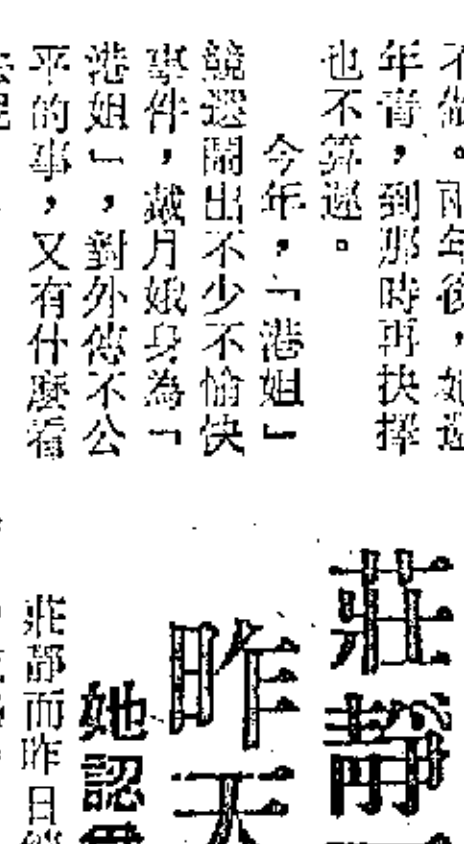 年青，到那時再抉擇
也不算遲。
今年，「港姐」
競選鬧出不少不愉快
事件，戴月娥身為「
港姐」，對外傳不公
平的事，又有什麼看
莊靜
昨天
她認
莊靜而昨日